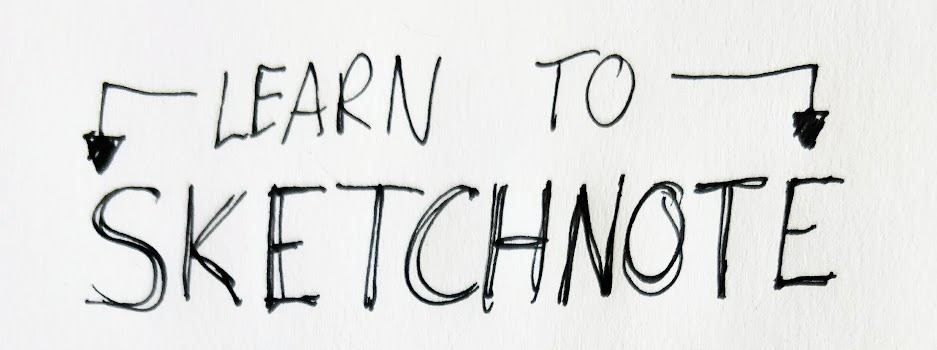 LEARN TO
SKETCHNOTE